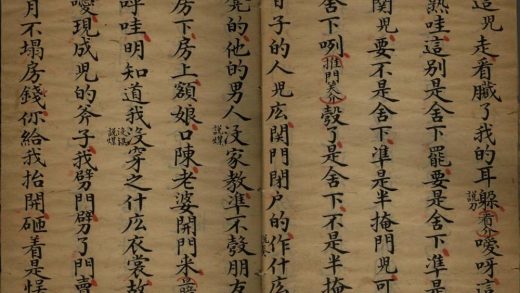 児走看臟了我的耳躲看介噯呀這
熟哇這别是舍下罷要是舍下準是
関児要不是舍下準是半掩門児可
舍下咧推門介彀了是舍下不是半掩
日子的人児庅関門閉户的作什庅
的他的男人沒家教準不彀朋友
說媒
房下房上額娘口陳老婆開門来
哇明知道我沒穿之什庅衣裳故
現成児的斧子我劈門劈了門賣
月不塌房錢你給我抬開砸着是悞